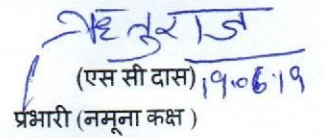 ऋतुराज
(एस सी दास) 19.06.19
प्रभारी (नमूना कक्ष)